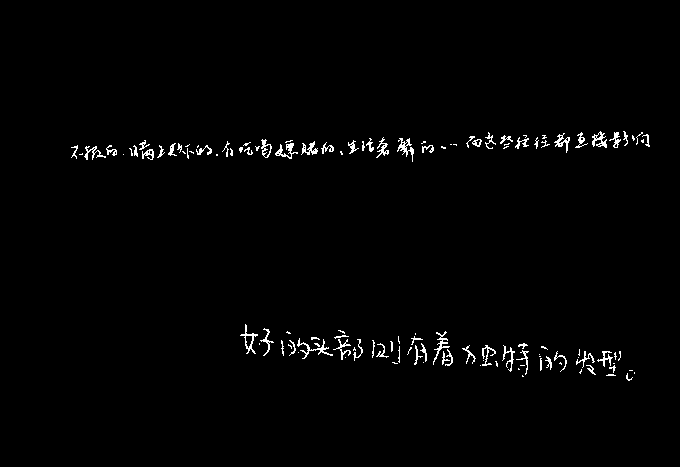 不报的、瞒上欺下的、有吃喝嫖赌的、生活奢靡的……而这些往往都直接影响
好的头部则有着独特的发型。